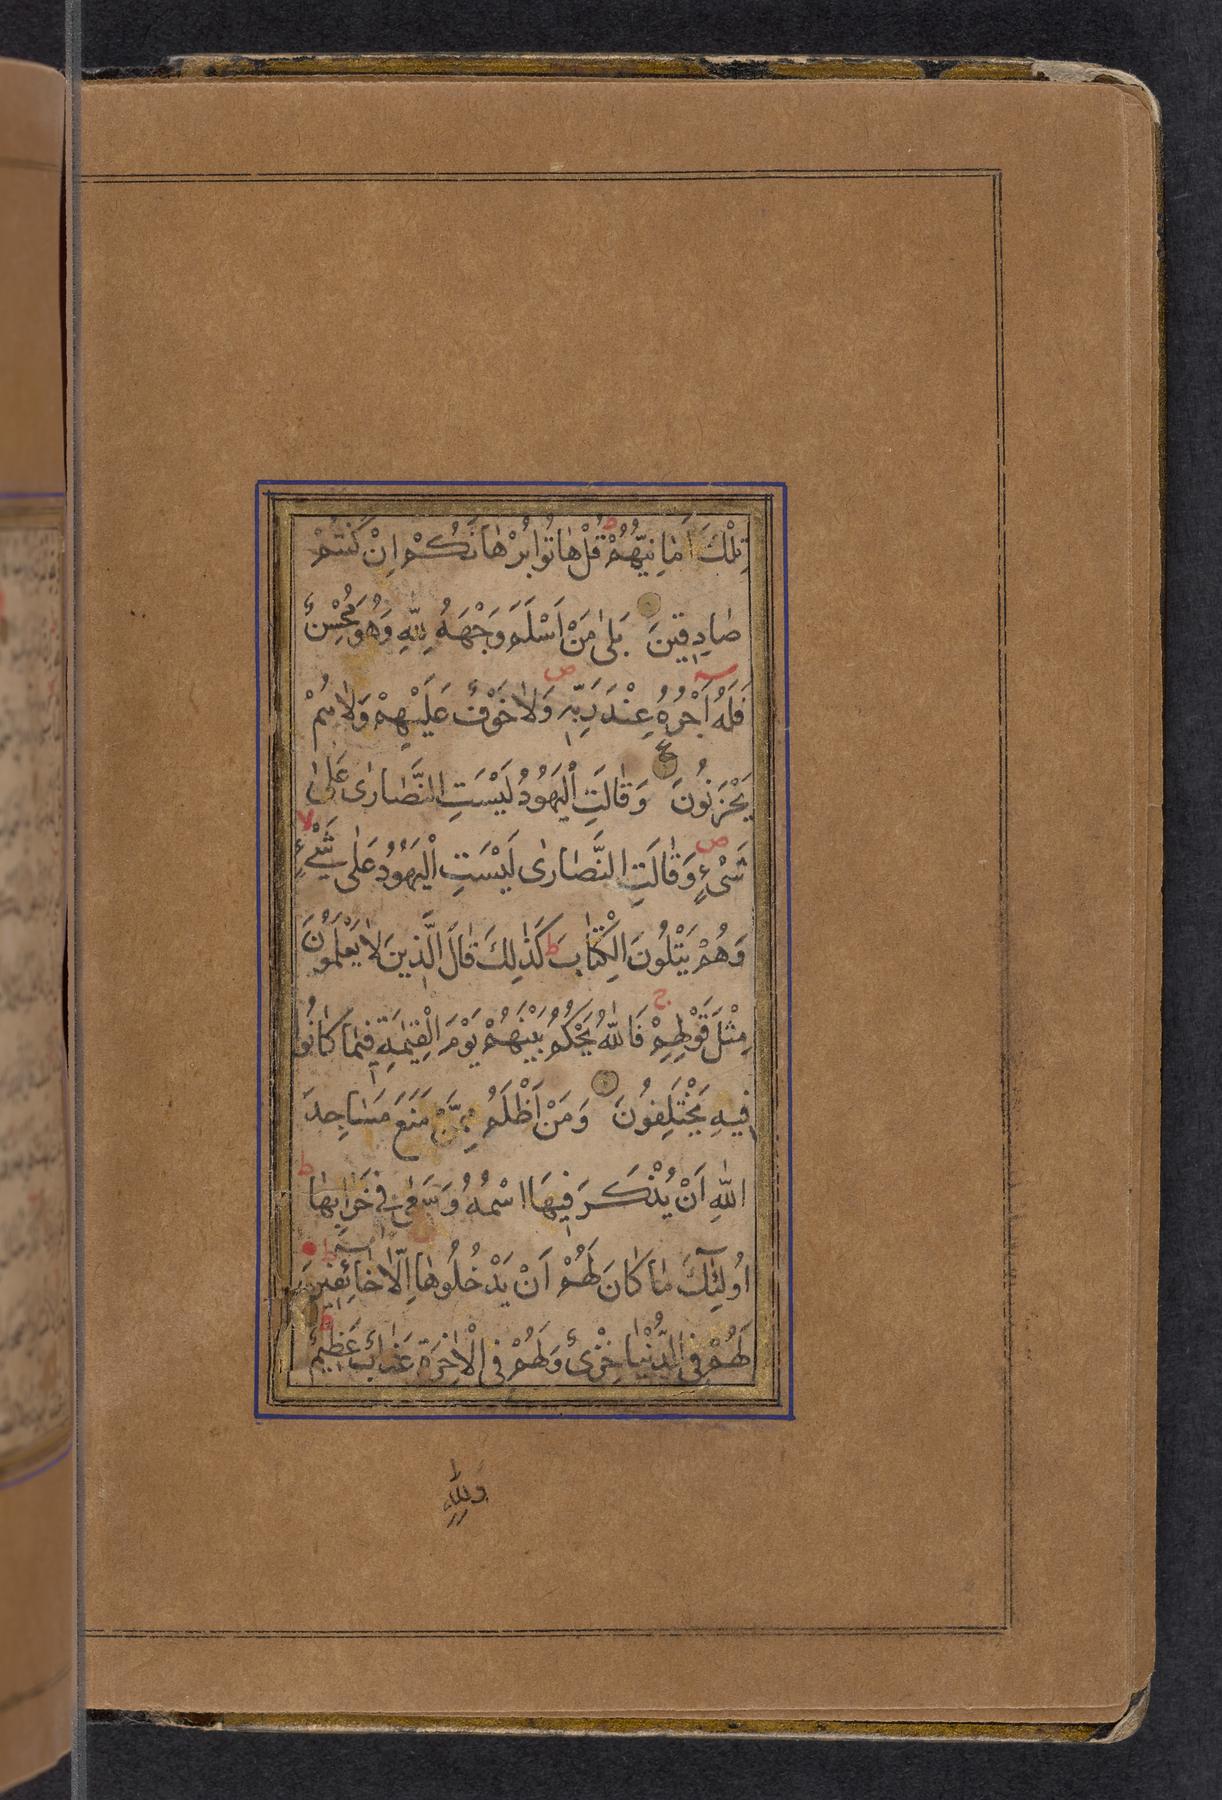 تِلْكَ اَمٰانِیُّهُمْ ط قُلْ هٰاتُوا بُرْهٰانَكُمْ اِنْ كُنْتُمْ
صٰادِقٖینَ بَلىٰ مَنْ اَسْلَمَ وَجْهَهُ لِلّٰهِ وَهُوَ مُحْسِنٌ
فَلَهُ اَجْرُهُ عِنْدَ رَبِّهٖ ص وَلاٰ خَوْفٌ عَلَیْهِمْ وَلاٰ هُمْ
یَحْزَنُونَ ع وَقٰالَتِ الْیَهُودُ لَیْسَتِ النَّصٰارىٰ عَلىٰ
شَیْءٍ ص وَقٰالَتِ النَّصٰارىٰ لَیْسَتِ الْیَهُودُ عَلىٰ شَیْءٍ لا
وَهُمْ یَتْلُونَ الْكِتٰابَ ط كَذٰلِكَ قٰالَ الَّذٖینَ لاٰ یَعْلَمُونَ
مِثْلَ قَوْلِهِمْ ج فَاللّٰهُ یَحْكُمُ بَیْنَهُمْ یَوْمَ الْقِیٰمَةِ فٖیمٰا كٰانُوا
فٖیهِ یَخْتَلِفُونَ وَمَنْ اَظْلَمُ مِمَّنْ مَنَعَ مَسٰاجِدَ
اللّٰهِ اَنْ یُذْكَرَ فٖیهَا اسْمُهُ وَسَعىٰ فٖی خَرٰابِهٰا ط
اُولٰئِكَ مٰا كٰانَ لَهُمْ اَنْ یَدْخُلُوهٰا اِلّاٰ خٰائِفٖینَ ط
لَهُمْ فِی الدُّنْیٰا خِزْیٌ وَلَهُمْ فِی الْاٰخِرَةِ عَذٰابٌ عَظٖیمٌ
وَلِلّٰهِ